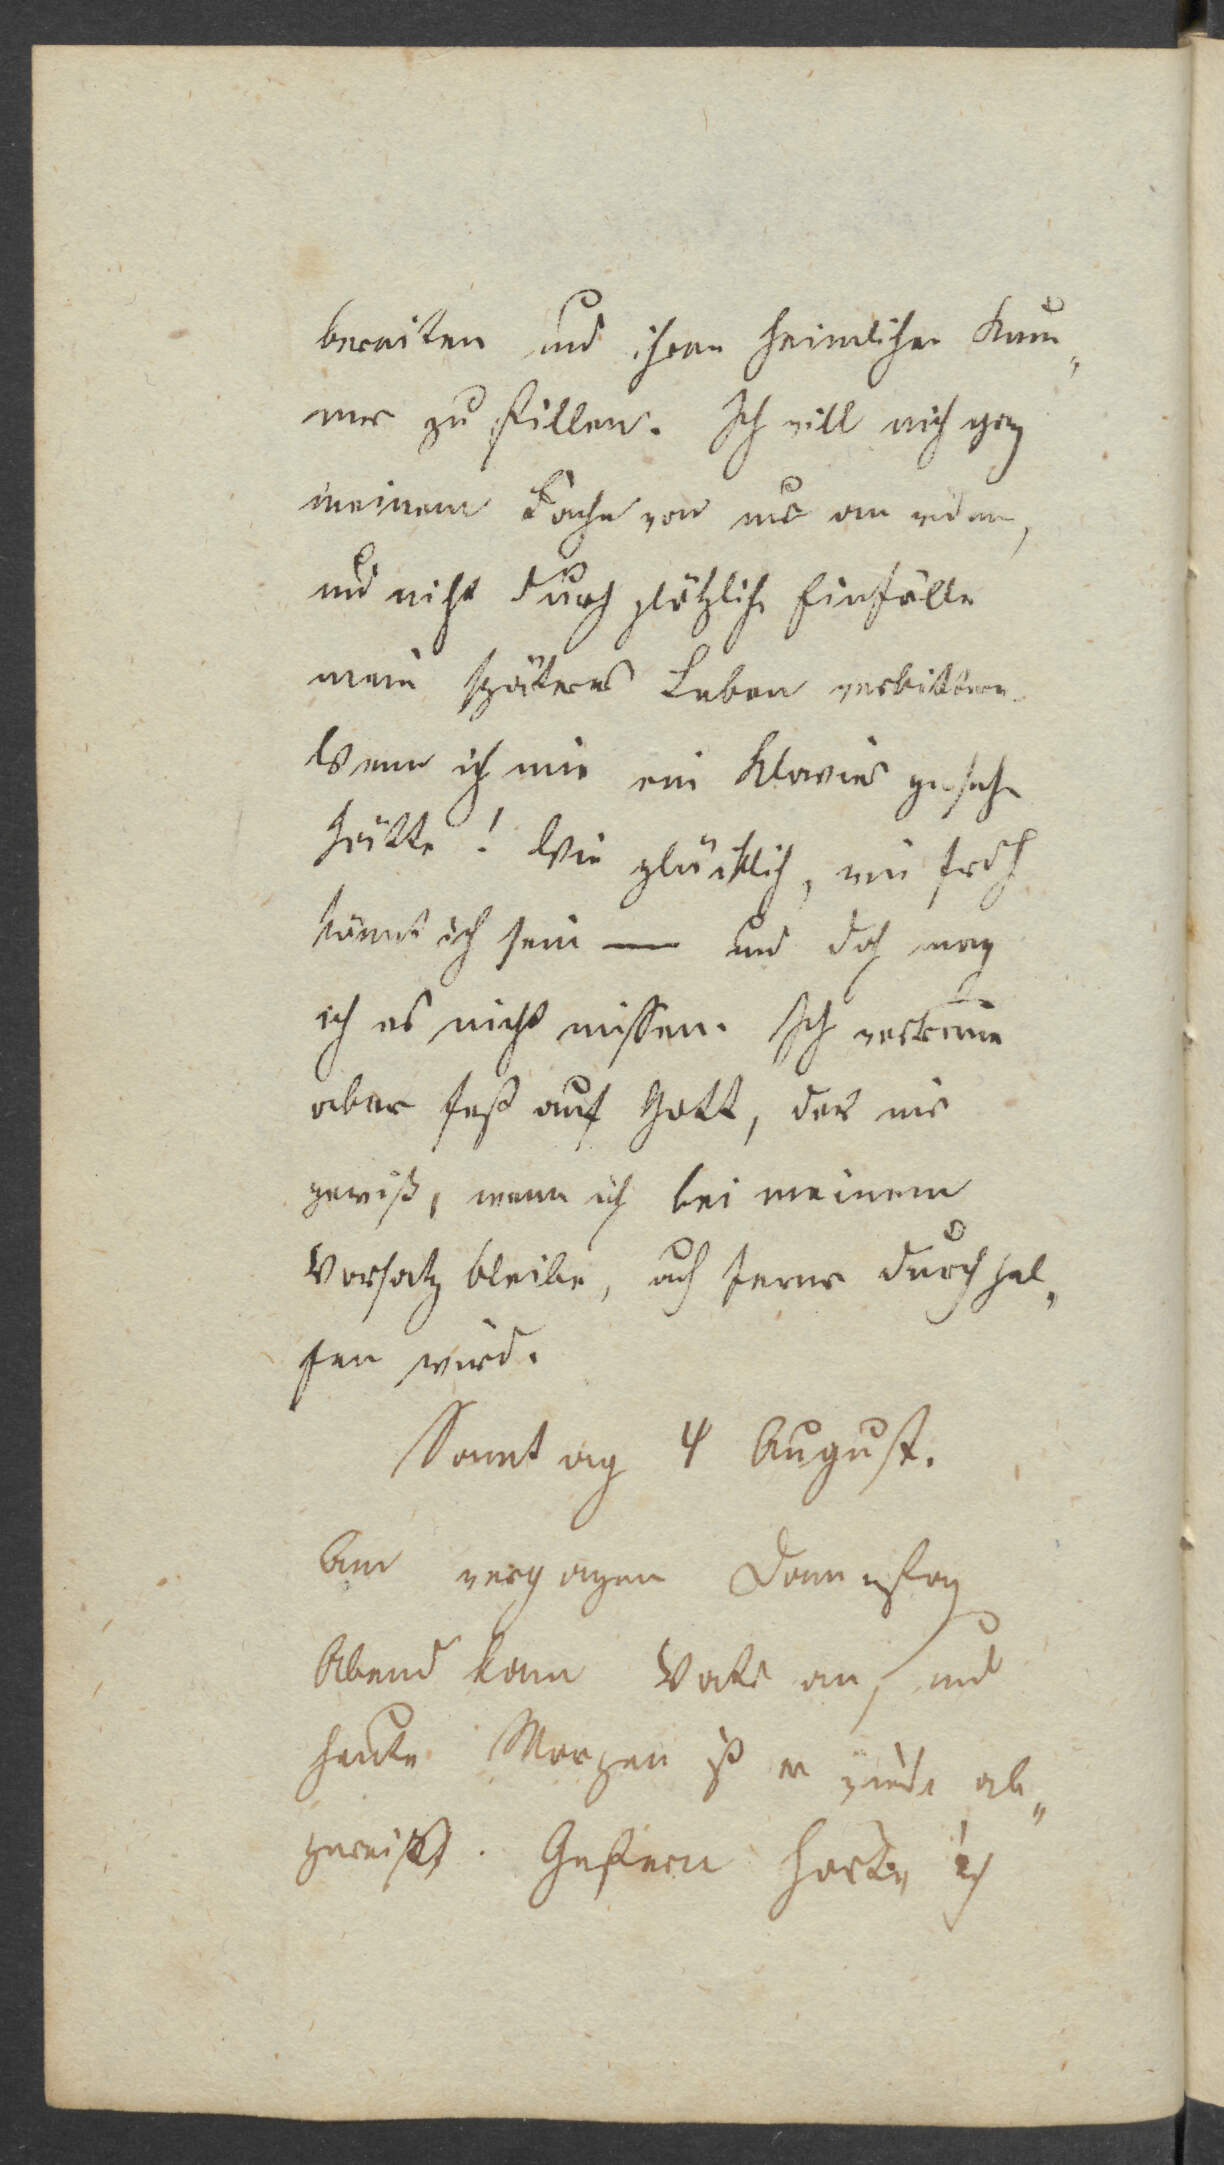 bereiten und ihren heimlichen Kum„
mer zu stillen. Ich will mich ganz
meinem Fache von nun an widmen,
und nicht durch plötzliche Einfälle
mein späteres Leben verbittern.
Wenn ich nie ein Klavier gesehn
hätte! Wie glücklich, wie froh
könnt ich sein — und doch mag
ich es nicht missen. Ich vertraue
aber fest auf Gott, der mir
gewiß, wenn ich bei meinem
Vorsatz bleibe, auch ferner durchhel„
fen wird.
Sonntag 4 August.
Am vergangen Donnerstag
Abend kam Vater an, und
heute Morgen ist er wieder ab„
gereist. Gestern hörte ich